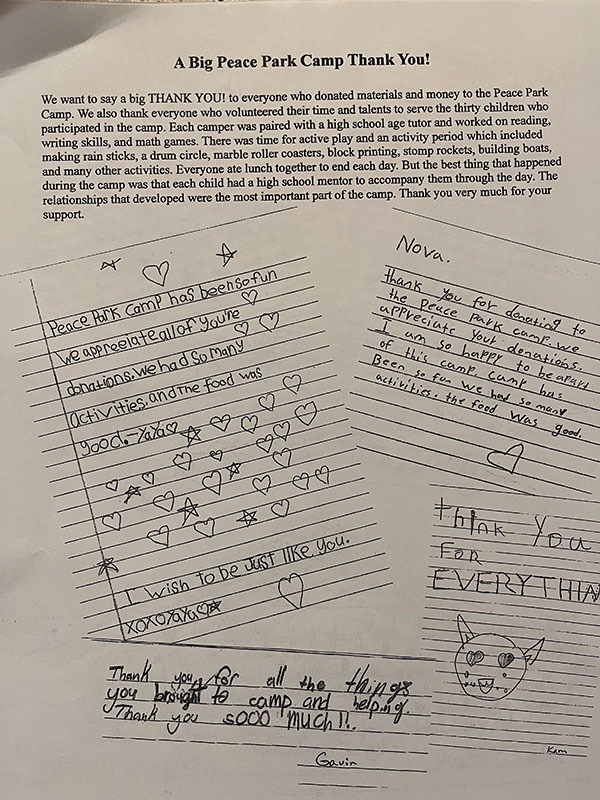 A Big Peace Park Camp Thank You!
We want to say a big THANK YOU! to everyone who donated materials and money to the Peace Park
Camp. We also thank everyone who volunteered their time and talents to serve the thirty children who
participated in the camp. Each camper was paired with a high school age tutor and worked on reading,
writing skills, and math games. There was time for active play and an activity period which included
making rain sticks, a drum circle, marble roller coasters, block printing, stomp rockets, building boats,
and many other activities. Everyone ate lunch together to end each day. But the best thing that happened
during the camp was that each child had a high school mentor to accompany them through the day. The
relationships that developed were the most important part of the camp. Thank you very much for your
support.
Peace Park Camp has been so fun
we appreciate all of you're
donations. we had so many
activities. and the food was
good. -YaYa
I wish to be Just like you.
XOXO YaYa
Nova.
thank you for donating to
the peace park camp. we
appreciate your donations.
I am so happy to be apart
of this camp. camp has
Been so fun we had so many
activities. the food was good.
thank you
FOR
EVERYTHIN
Kam
Thank you for all the things
you brought to camp and helping.
Thank you sooo much!!.
Gavin